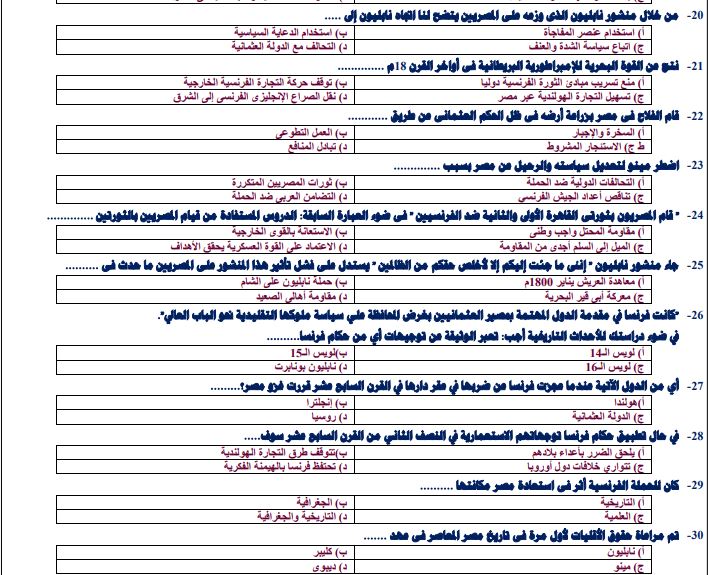 20- من خلال منشور نابليون الذى وزعه على المصريين يتضح لنا اتجاه نابليون إلى .....
أ) استخدام عنصر المفاجأة ب) استخدام الدعاية السياسية
ج) اتباع سياسة الشدة والعنف د) التحالف مع الدولة العثمانية
21- نتج عن القوة البحرية للإمبراطورية البريطانية فى أواخر القرن 18م ..............
أ) منع تسريب مبادئ الثورة الفرنسية دوليا ب) توقف حركة التجارة الفرنسية الخارجية
ج) تسهيل التجارة الهولندية عبر مصر د) نقل الصراع الإنجليزى الفرنسى إلى الشرق
22- قام الفلاح فى مصر بزراعة أرضه فى ظل الحكم العثمانى عن طريق ............
أ) السخرة والإجبار ب) العمل التطوعى
ط ج) الاستئجار المشروط د) تبادل المنافع
23- اضطر مينو لتعديل سياسته والرحيل عن مصر بسبب ..............
أ) التحالفات الدولية ضد الحملة ب) ثورات المصريين المتكررة
ج) تناقص أعداد الجيش الفرنسى د) التضامن العربى ضد الحملة
24- " قام المصريون بثورتى القاهرة الأولى والثانية ضد الفرنسيين " فى ضوء العبارة السابقة: الدروس المستفادة من قيام المصريين بالثورتين ..............
أ) مقاومة المحتل واجب وطنى ب) الاستعانة بالقوى الخارجية
ج) الميل إلى السلم أجدى من المقاومة د) الاعتماد على القوة العسكرية يحقق الأهداف
25- جاء منشور نابليون " إننى ما جئت إليكم إلا لأخلص حقكم من الظالمين " يستدل على فشل تأثير هذا المنشور على المصريين ما حدث فى ..........
أ) معاهدة العريش يناير 1800م ب) حملة نابليون على الشام
ج) معركة أبى قير البحرية د) مقاومة أهالى الصعيد
26- "كانت فرنسا في مقدمة الدول المهتمة بمصير العثمانيين بغرض المحافظة علي سياسة ملوكها التقليدية نحو الباب العالي".
في ضوء دراستك للأحداث التاريخية أجب: تعبر الوثيقة عن توجيهات أي من حكام فرنسا..........
أ) لويس الـ14 ب)لويس الـ15
ج) لويس الـ16 د) نابليون بونابرت
27- أي من الدول الآتية عندما عجزت فرنسا عن ضربها في عقر دارها في القرن السابع عشر قررت غزو مصر؟..........
أ)هولندا ب) إنجلترا
ج) الدولة العثمانية د) روسيا
28- في حال تطبيق حكام فرنسا توجهاتهم الاستعمارية في النصف الثاني من القرن السابع عشر سوف.....
أ) يلحق الضرر بأعداء بلادهم ب)تتوقف طرق التجارة الهولندية
ج) تتواري خلافات دول أوروبا د) تحتفظ فرنسا بالهيمنة الفكرية
29- كان للحملة الفرنسية أثر فى استعادة مصر مكانتها ..........
أ) التاريخية ب) الجغرافية
ج) العلمية د) التاريخية والجغرافية
30- تم مراعاة حقوق الأقليات لأول مرة فى تاريخ مصر المعاصر فى عهد .......
أ) نابليون ب) كليبر
ج) مينو د) ديبوى